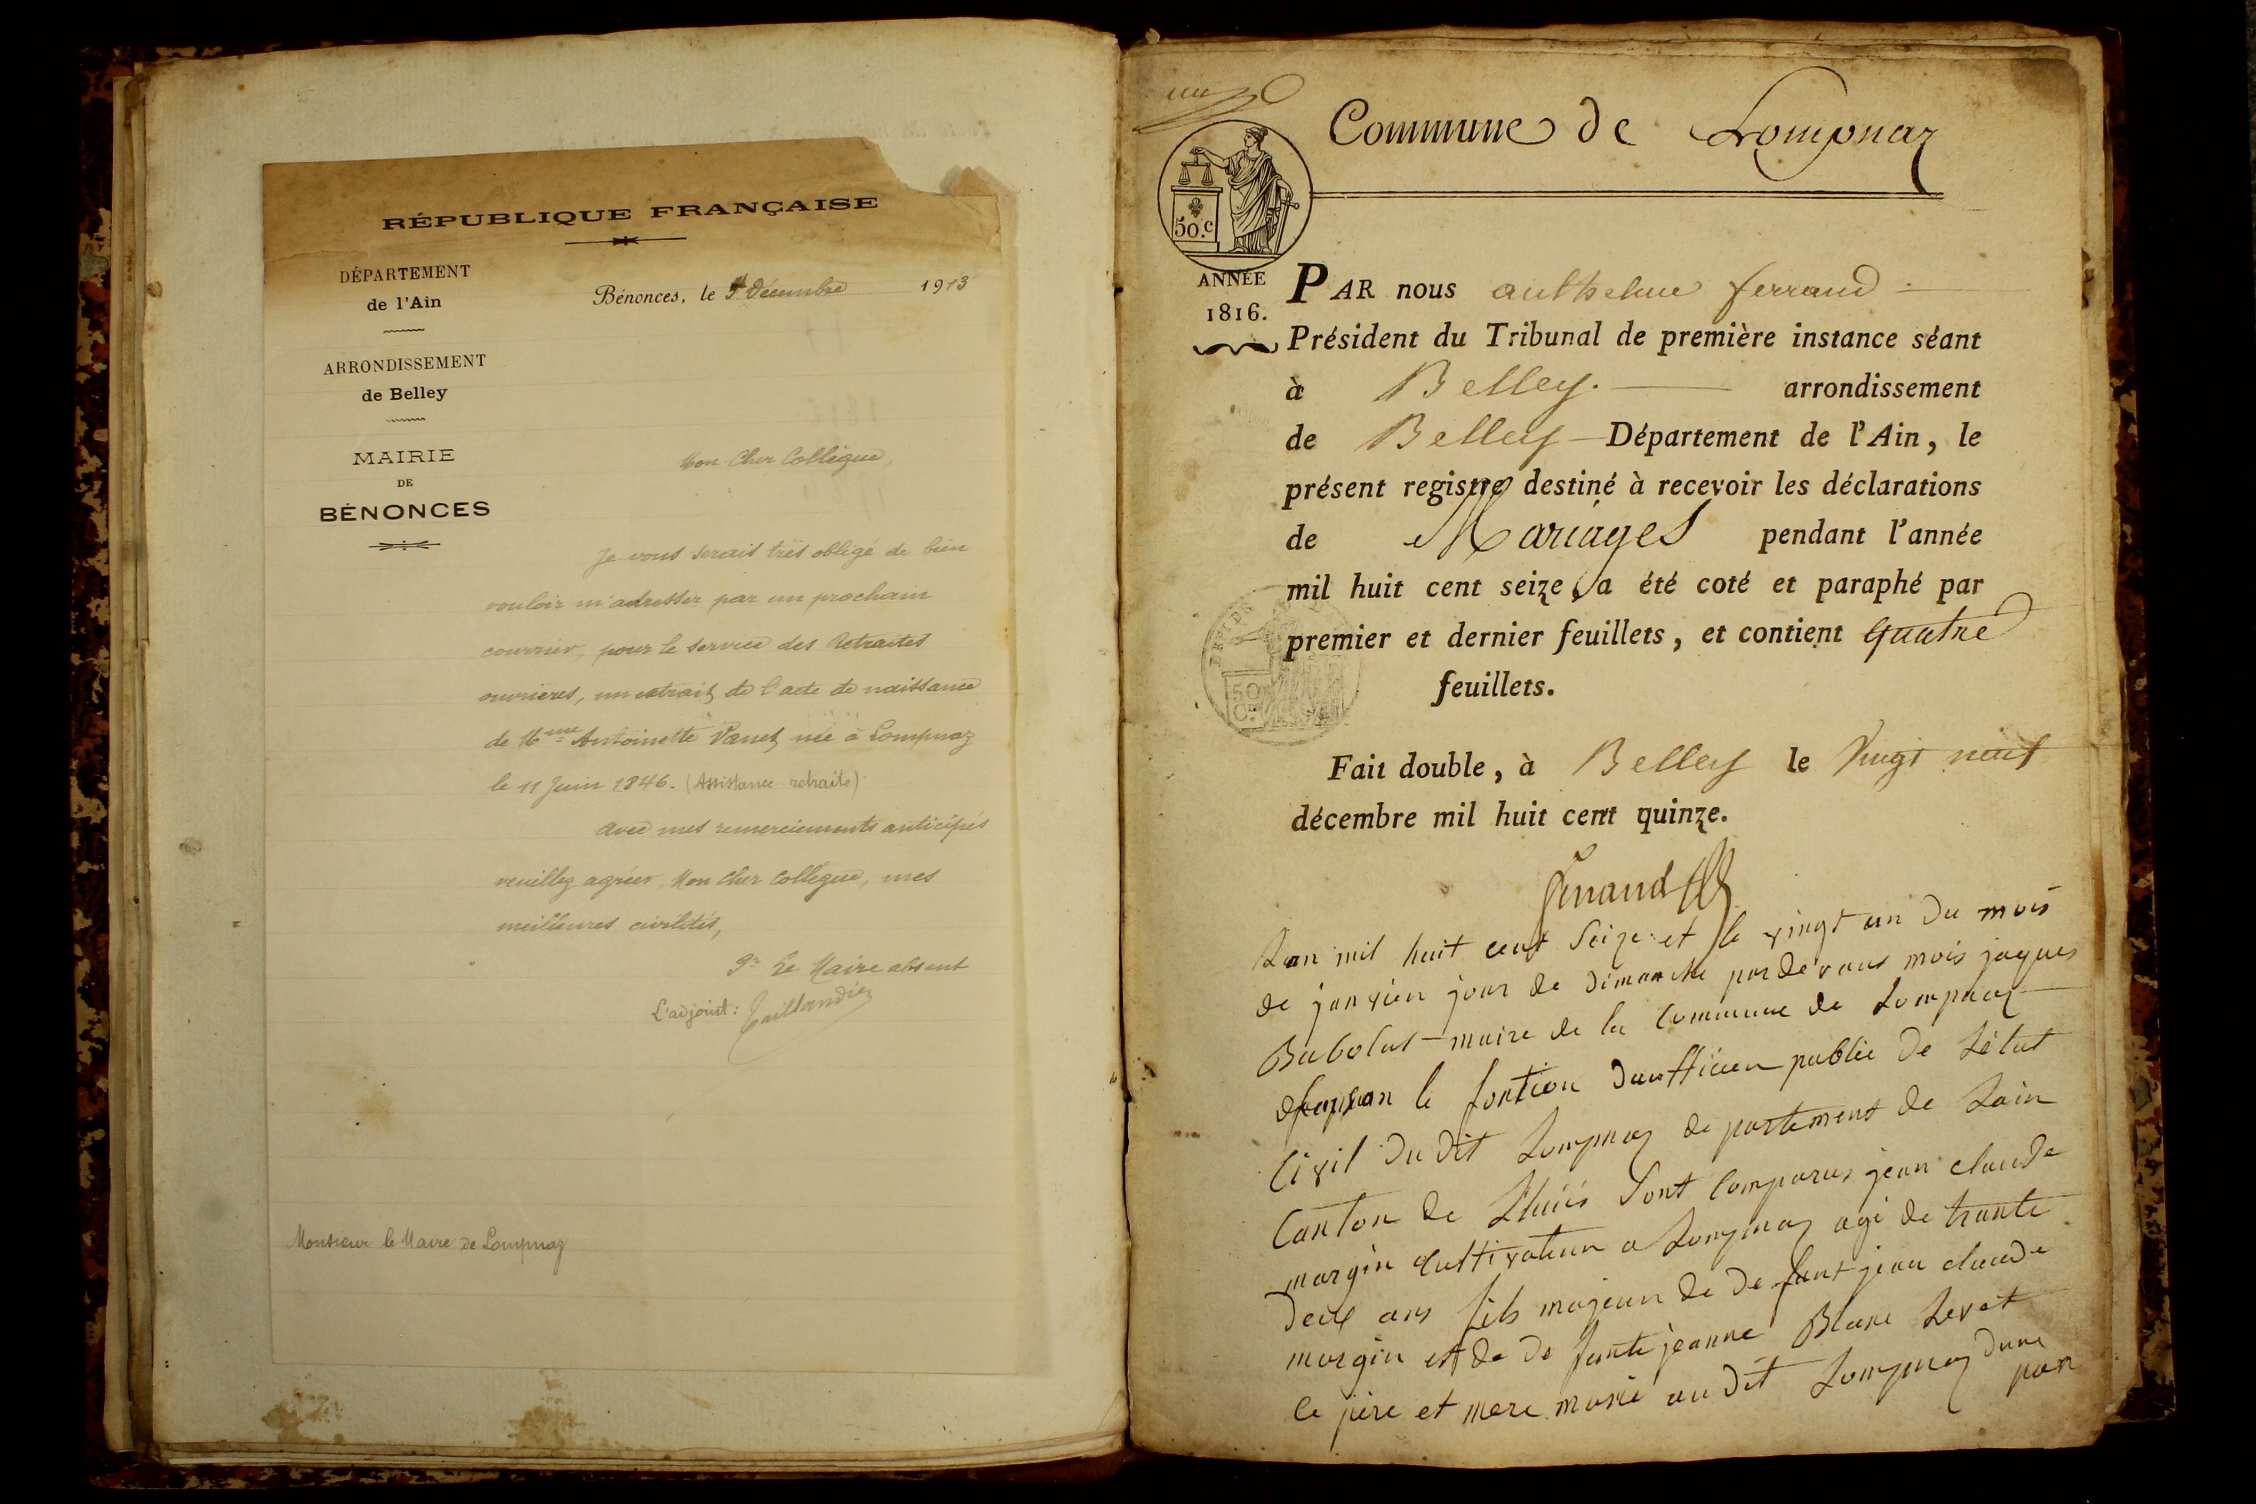 RÉPUBLIQUE FRANÇAISE
DÉPARTEMENT
de l'Ain
ARRONDISSEMENT
de Belley
MAIRIE
DE
BÉNONCES
Bénonces, le Décembre 1913
Mon Cher Collègue,
Je vous serais très obligé de bien
vouloir m'adresser par un prochain
courrier, pour le service des Retraites
ouvrières, un extrait de l'acte de naissance
de Mme Antoinette née à Lompnaz
le 11 Juin 1846. (Assistance retraite)
Avec mes remerciements anticipés
veuillez agréer, Mon Cher Collègue, mes
meilleures civilités,
Pr Le Maire absent
L'adjoint: Taillandier
Monsieur le Maire de Lompnaz
Commune de Lompnaz
50.c
ANNÉE
1816.
PAR nous anthelme ferrand
Président du Tribunal de première instance séant
à Belley. arrondissement
de Belley Département de l'Ain, le
présent registre destiné à recevoir les déclarations
de Mariages pendant l'année
mil huit cent seize, a été coté et paraphé par
premier et dernier feuillets, et contient quatre
feuillets.
50
C.
Fait double, à Belley le Vingt neuf
décembre mil huit cent quinze.
ferrand
Lan mil huit cent Seize et le vingt un du mois
de janvien jour de dimanche par devans mois jaques
Babolat maire de la Commune de Lompnaz
le fontion dauffiicien publie De Létat
Civil Du dit Lompnaz departement de Lain
Canton de Lhuis Sont Comparus jean claude
margin Cultivateur a Lompnaz agé de trante
deux ans fils majeur de defunt jean claude
margin et de defunte jeanne Blanc
Ce père et mere marié au dit Lompnaz dune
par